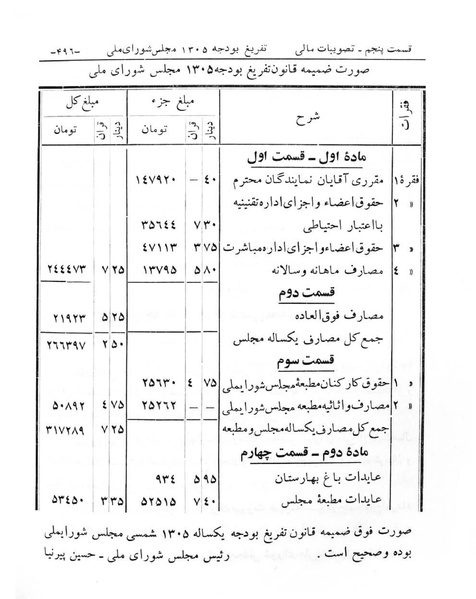 قسمت پنجم ـ تصویبات مالی تفریغ بودجه ۱۳۰۵ مجلس شورای ملی -۴۹۶-
صورت ضمیمه قانون تفریغ بودجه ۱۳۰۵ مجلس شورای ملی
فقرات شرح مبلغ جزء مبلغ کل
دینار قران تومان دینار قران تومان
مادهٔ اول ـ قسمت اول
فقرهٔ ۱ مقرری آقایان نمایندگان محترم ۴۰ — ۱۴۷۹۲۰
» ۲ حقوق اعضاء و اجزای اداره تقنینیه
بااعتبار احتیاطی ۳۰ ۷ ۳۵۶۴۴
» ۳ حقوق اعضاء و اجزای اداره مباشرت ۷۵ ۳ ۴۷۱۱۳
» ۴ مصارف ماهانه و سالانه ۸۰ ۵ ۱۳۷۹۵ ۲۵ ۷ ۲۴۴۴۷۳
قسمت دوم
مصارف فوق العاده ۲۵ ۵ ۲۱۹۲۳
جمع کل مصارف یکساله مجلس ۵۰ ۲ ۲۶۶۳۹۷
قسمت سوم
» ۱ حقوق کارکنان مطبعهٔ مجلس شورایملی ۷۵ ۴ ۲۵۶۳۰
» ۲ مصارف و اثاثیه مطبعه مجلس شورایملی — — ۲۵۲۶۲ ۷۵ ۴ ۵۰۸۹۲
جمع کل مصارف یکساله مجلس و مطبعه ۲۵ ۷ ۳۱۷۲۸۹
مادهٔ دوم ـ قسمت چهارم
عایدات باغ بهارستان ۹۵ ۵ ۹۳۴
عایدات مطبعهٔ مجلس ۴۰ ۷ ۵۲۵۱۵ ۳۵ ۳ ۵۳۴۵۰
صورت فوق ضمیمه قانون تفریغ بودجه یکساله ۱۳۰۵ شمسی مجلس شورایملی
بوده وصحیح است . رئیس مجلس شورای ملی ـ حسین پیرنیا